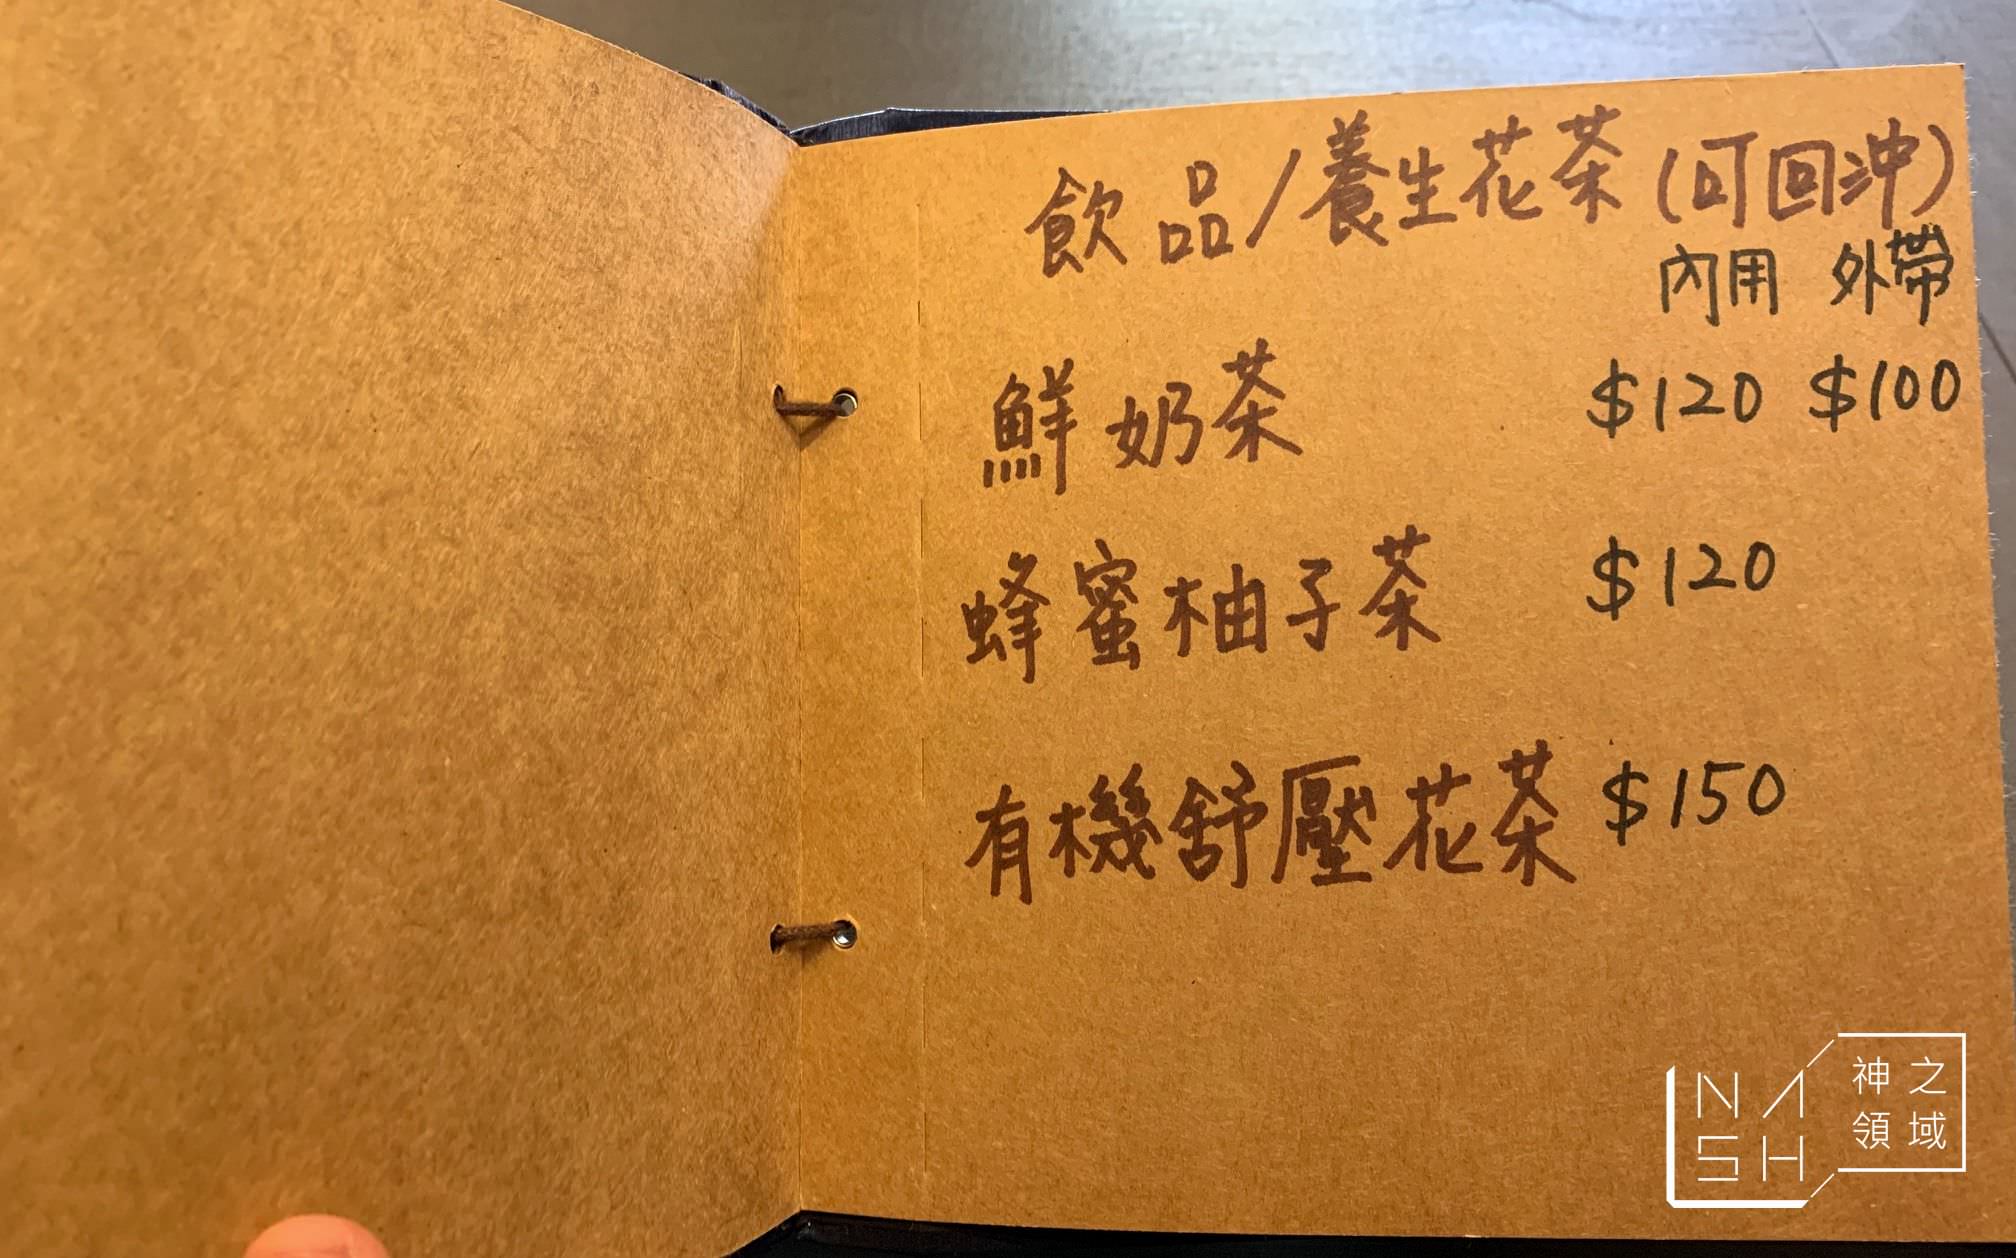 飲品/養生花茶(可回沖)
內用 外帶
鮮奶茶 $120 $100
蜂蜜柚子茶 $120
有機舒壓花茶 $150
NASH
神之
領域